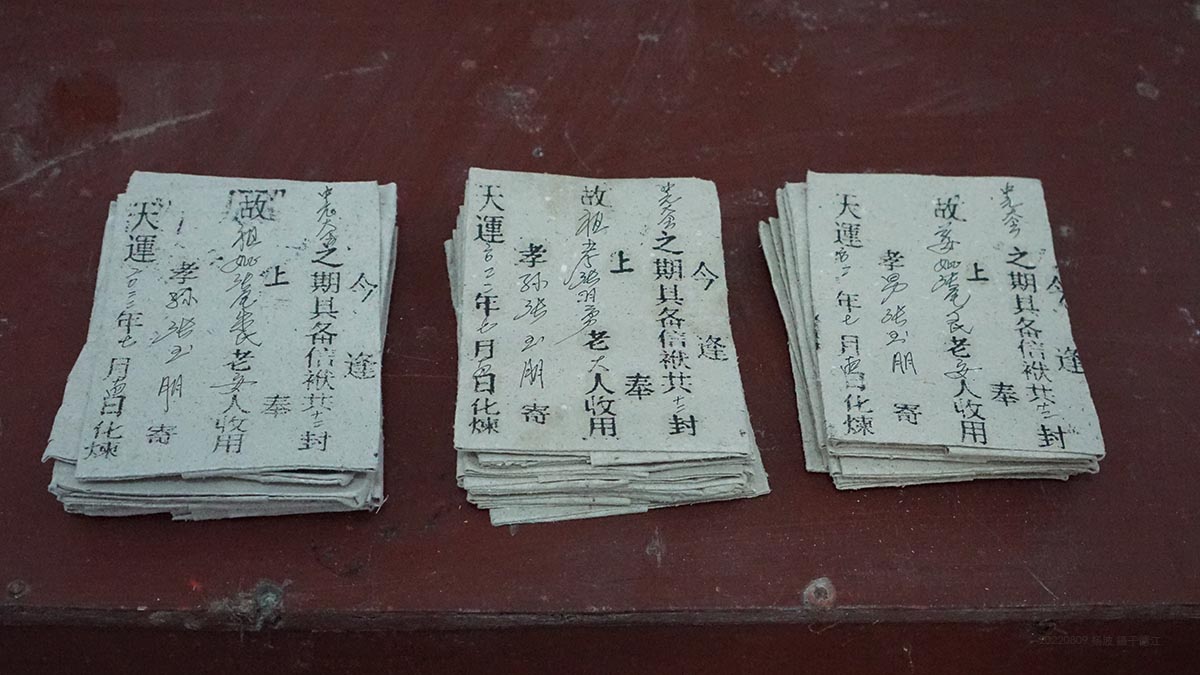 今逢
中元大会之期具备信袱共十二封
上奉
故祖妣张氏老安人收用
孝孙张玉朋寄
天運二〇二二年七月日化煉
今逢
中元会之期具备信袱共十二封
上奉
故祖考张明勇老大人收用
孝孙张玉朋寄
天運二〇二二年七月日化煉
今逢
中元会之期具备信袱共十二封
上奉
故妣张氏老安人收用
孝男张玉朋寄
天運年七月日化煉
20220809